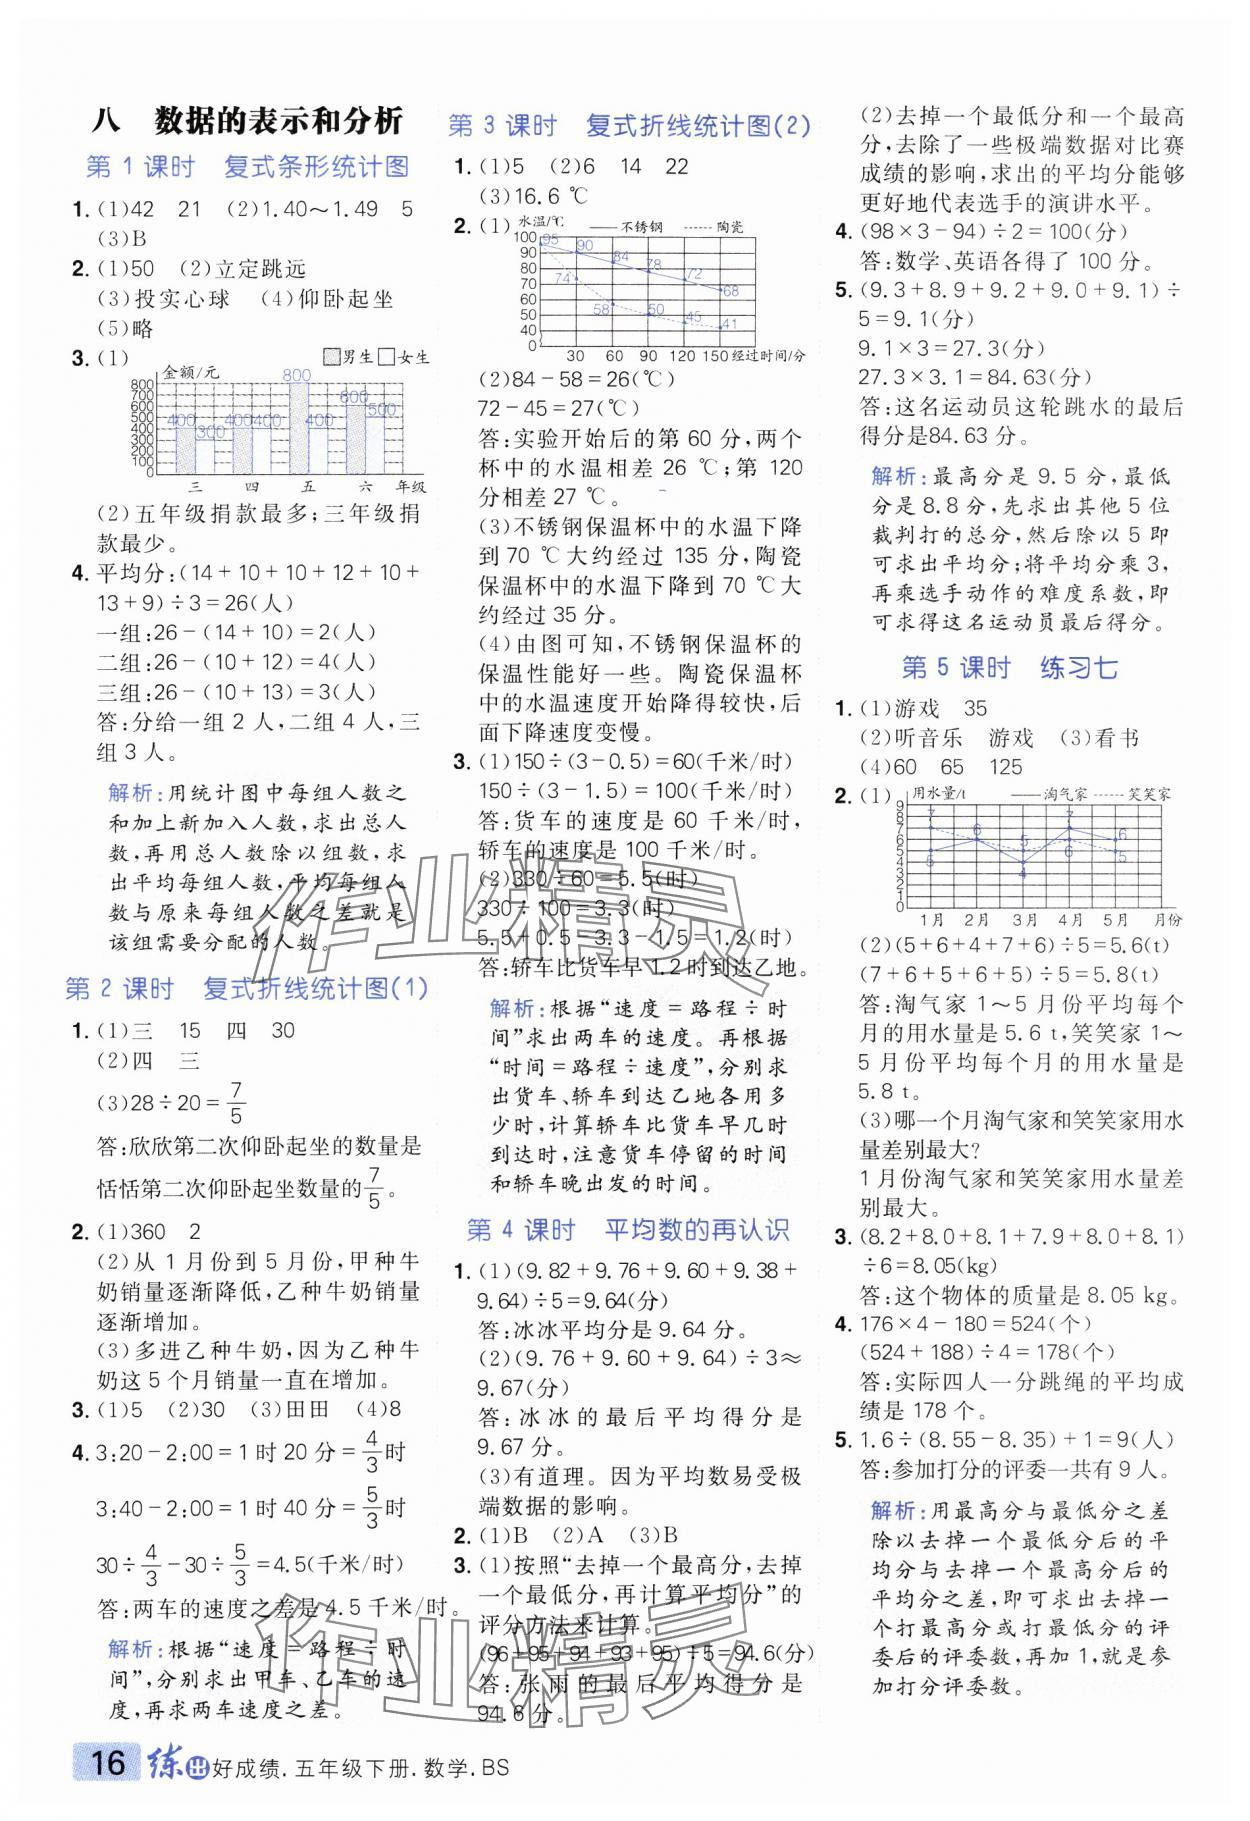 八 数据的表示和分析
第 1 课时 复式条形统计图
1. (1)42 21 (2)1.40～1.49 5
(3)B
2. (1)50 (2)立定跳远
(3)投实心球 (4)仰卧起坐
(5)略
3. (1)
男生 女生
金额/元
800
700
600
500
400
300
200
100
0
400 300 400 400 800 600 500
三 四 五 六 年级
(2)五年级捐款最多;三年级捐
款最少。
4. 平均分:(14+10+10+12+10+
13+9)÷3=26(人)
一组:26-(14+10)=2(人)
二组:26-(10+12)=4(人)
三组:26-(10+13)=3(人)
答:分给一组 2 人,二组 4 人,三
组 3 人。
解析:用统计图中每组人数之
和加上新加入人数,求出总人
数,再用总人数除以组数,求
出平均每组人数,平均每组人
数与原来每组人数之差就是
该组需要分配的人数。
第 2 课时 复式折线统计图(1)
1. (1)三 15 四 30
(2)四 三
(3)28÷20=7/5
答:欣欣第二次仰卧起坐的数量是
恬恬第二次仰卧起坐数量的7/5。
2. (1)360 2
(2)从 1 月份到 5 月份,甲种牛
奶销量逐渐降低,乙种牛奶销量
逐渐增加。
(3)多进乙种牛奶,因为乙种牛
奶这 5 个月销量一直在增加。
3. (1)5 (2)30 (3)田田 (4)8
4. 3:20-2:00=1 时 20 分=4/3时
3:40-2:00=1 时 40 分=5/3时
30÷4/3-30÷5/3=4.5(千米/时)
答:两车的速度之差是 4.5 千米/时。
解析:根据“速度=路程÷时
间”,分别求出甲车、乙车的速
度,再求两车速度之差。
第 3 课时 复式折线统计图(2)
1. (1)5 (2)6 14 22
(3)16.6 ℃
2. (1)
水温/℃ 不锈钢 陶瓷
100
90
80
70
60
50
40
0
95 90 84 78 72 68
74 58 50 45 41
30 60 90 120 150 经过时间/分
(2)84-58=26(℃)
72-45=27(℃)
答:实验开始后的第 60 分,两个
杯中的水温相差 26 ℃;第 120
分相差 27 ℃。
(3)不锈钢保温杯中的水温下降
到 70 ℃大约经过 135 分,陶瓷
保温杯中的水温下降到 70 ℃大
约经过 35 分。
(4)由图可知,不锈钢保温杯的
保温性能好一些。陶瓷保温杯
中的水温速度开始降得较快,后
面下降速度变慢。
3. (1)150÷(3-0.5)=60(千米/时)
150÷(3-1.5)=100(千米/时)
答:货车的速度是 60 千米/时,
轿车的速度是 100 千米/时。
(2)330÷60=5.5(时)
330÷100=3.3(时)
5.5+0.5-3.3-1.5=1.2(时)
答:轿车比货车早 1.2 时到达乙地。
解析:根据“速度=路程÷时
间”求出两车的速度。再根据
“时间=路程÷速度”,分别求
出货车、轿车到达乙地各用多
少时,计算轿车比货车早几时
到达时,注意货车停留的时间
和轿车晚出发的时间。
第 4 课时 平均数的再认识
1. (1)(9.82+9.76+9.60+9.38+
9.64)÷5=9.64(分)
答:冰冰平均分是 9.64 分。
(2)(9.76+9.60+9.64)÷3≈
9.67(分)
答:冰冰的最后平均得分是
9.67 分。
(3)有道理。因为平均数易受极
端数据的影响。
2. (1)B (2)A (3)B
3. (1)按照“去掉一个最高分,去掉
一个最低分,再计算平均分”的
评分方法来计算。
(96+95+94+93+95)÷5=94.6(分)
答:张雨的最后平均得分是
94.6 分。
(2)去掉一个最低分和一个最高
分,去除了一些极端数据对比赛
成绩的影响,求出的平均分能够
更好地代表选手的演讲水平。
4. (98×3-94)÷2=100(分)
答:数学、英语各得了 100 分。
5. (9.3+8.9+9.2+9.0+9.1)÷
5=9.1(分)
9.1×3=27.3(分)
27.3×3.1=84.63(分)
答:这名运动员这轮跳水的最后
得分是84.63 分。
解析:最高分是 9.5 分,最低
分是 8.8 分,先求出其他 5 位
裁判打的总分,然后除以 5 即
可求出平均分;将平均分乘 3,
再乘选手动作的难度系数,即
可求得这名运动员最后得分。
第 5 课时 练习七
1. (1)游戏 35
(2)听音乐 游戏 (3)看书
(4)60 65 125
2. (1)
用水量/t 淘气家 笑笑家
9
8
7
6
5
4
3
2
1
0
7 6 5 7 6
5 4 6 5
1月 2月 3月 4月 5月 月份
(2)(5+6+4+7+6)÷5=5.6(t)
(7+6+5+6+5)÷5=5.8(t)
答:淘气家 1～5 月份平均每个
月的用水量是 5.6 t,笑笑家 1～
5 月份平均每个月的用水量是
5.8 t。
(3)哪一个月淘气家和笑笑家用水
量差别最大?
1 月份淘气家和笑笑家用水量差
别最大。
3. (8.2+8.0+8.1+7.9+8.0+8.1)
÷6=8.05(kg)
答:这个物体的质量是 8.05 kg。
4. 176×4-180=524(个)
(524+188)÷4=178(个)
答:实际四人一分跳绳的平均成
绩是 178 个。
5. 1.6÷(8.55-8.35)+1=9(人)
答:参加打分的评委一共有 9 人。
解析:用最高分与最低分之差
除以去掉一个最低分后的平
均分与去掉一个最高分后的
平均分之差,即可求出去掉一
个打最高分或打最低分的评
委后的评委数,再加 1,就是参
加打分评委数。
作业精灵
作业精灵
16 练出好成绩.五年级下册.数学.BS